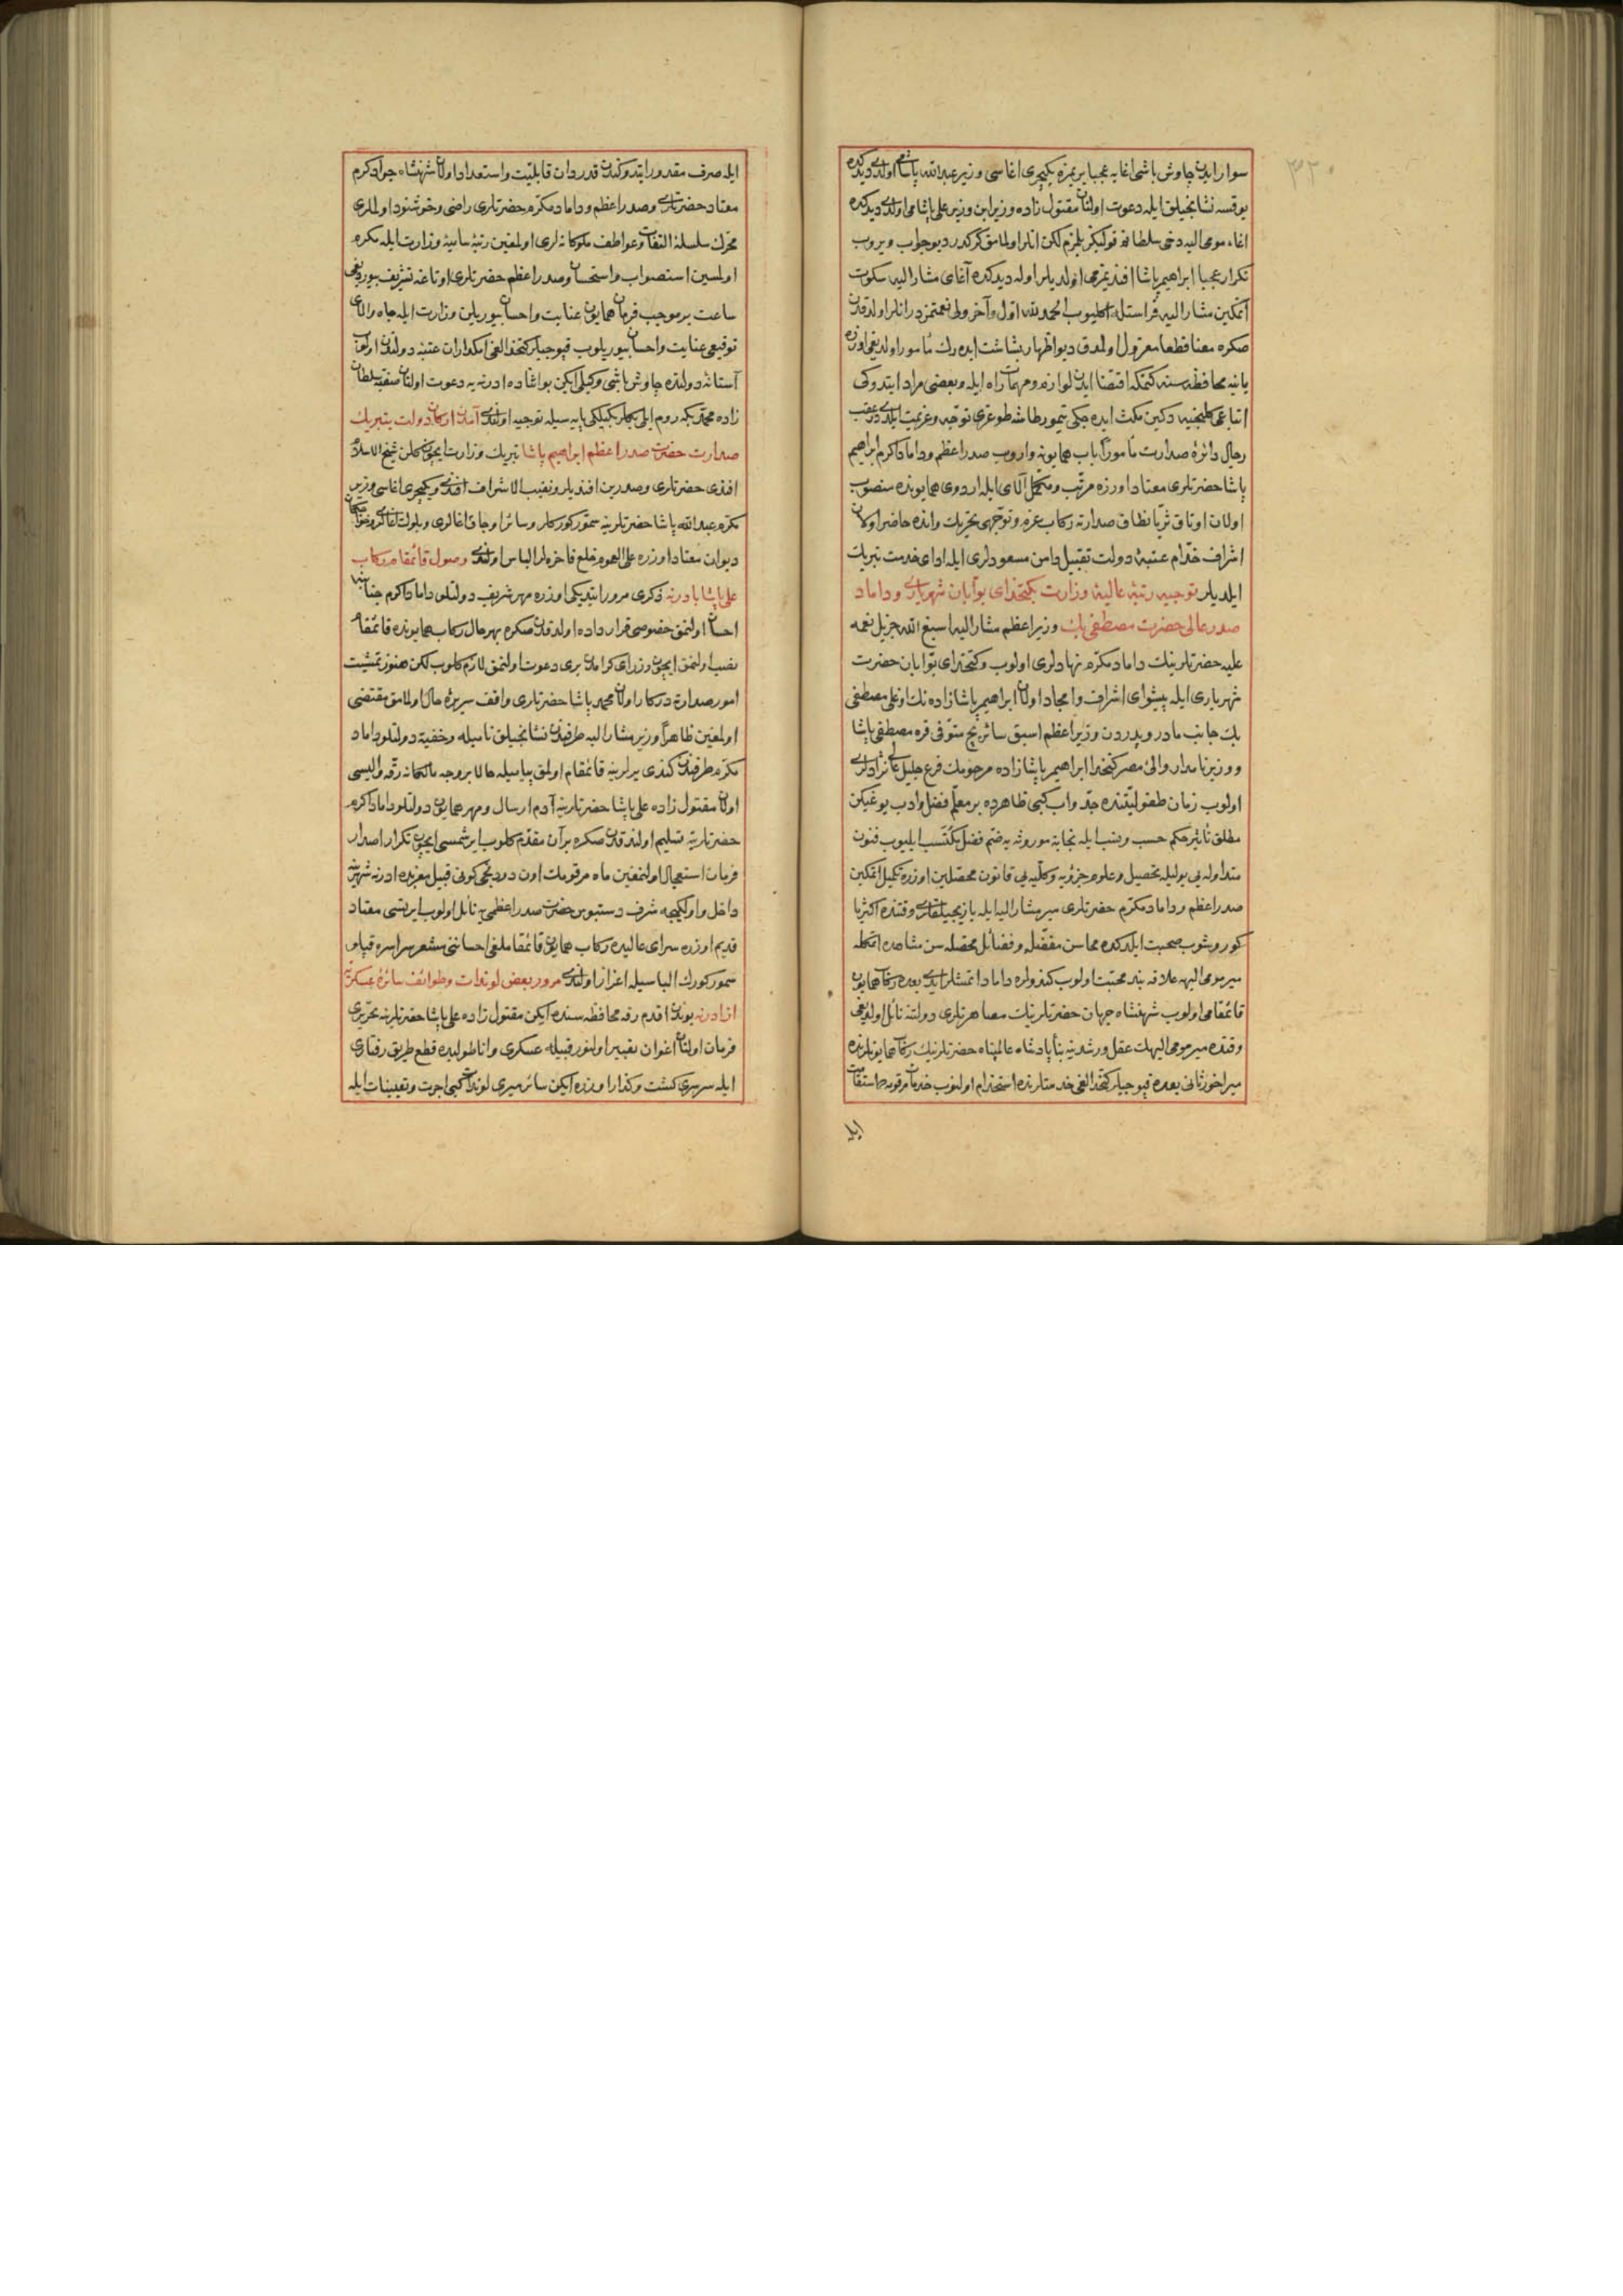 ٣٢٠
سوار ايدن چاوش باشى اغايه عجبا يريمزه يكيچرى اغاسى وزير عبد الله پاشامى اولدى ديدكده
يوقسه نشانجيلق ايله دعوت اولنان مقتول زاده وزير ابن وزير على پاشامى اولدى ديدكده
اغاء مومى اليه دخى سلطانم قولكز بيلزم لكن انلر اولمامق كركدر ديو جواب ويروب
تكرار عجبا ابراهيم پاشا افنديمزمى اولديلر اوله ديدكده آغاى مشار اليه سكوت
اتمكين مشار اليه فراستله اكليوب الحمد لله اول وآخر ولى نعمتمزدر انلر اولدقدن
صكره معنا قطعا معزول اولمدق ديو اظهار بشاشت ايدهرك مأمور اولديغى اوزره
يانيه محافظه سنه كتمكه اقتضا ايدن لوازم ومهمات راه ايله وبعضى مراد ايتدوكى
اتباعى كلنجيه دكين مكث ايده جكى تيمورطاشه طوغرى توجه وعزيمت ايلدى درعقب
رجال دائرۀ صدارت مأمورا باب همايونه واروب صدر اعظم وداماد اكرم ابراهيم
پاشا حضرتلرى معتاد اوزره مرتب ومكمل آلاى ايله اردوى همايونده منصوب
اولان اوتاق ثريا نطاق صدارته ركاب عزم وتوجهى تحريك وانده حاضر اولان
اشراف خدام عتبۀ دولت تقبيل دامن مسعودلرى ايله اداى خدمت تبريك
ايلديلر توجيه رتبۀ عاليۀ وزارت بكتخداى بوابان شهريارى وداماد
صدر عالى حضرت مصطفى بك وزير اعظم مشار اليه اسبغ الله جزيل نعمه
عليه حضرتلرينك داماد مكرم نهادلرى اولوب وكتخداى بوابان حضرت
شهريارى ايله پيشواى اشراف وامجاد اولان ابراهيم پاشازاده نك اوغلى مصطفى
بك جانب مادر وپدردن وزير اعظم اسبق سائر بج متوفى قره مصطفى پاشا
ووزير نامدار والئ مصر كتخدا ابراهيم پاشازاده مرحومك فرع جليل عالى نژادلرى
اولوب زمان طفوليتنده جد واب كبى ظاهرده بر معلم فضل وادب يوغيكن
مطلق تأثير حكم حسب ونسب ايله نجابة موروثه يه ضم فضل مكتسب ايليوب فنون
متداوله يى بوليله تحصيل وعلوم جزؤيه وكليه يى قانون محصلين اوزره تكميل اتمكين
صدر اعظم وداماد مكرم حضرتلرى مير مشار اليه ايله يازيجيلقلرى وقتنده اكثريا
كوروشوب صحبت ايلدكده محاسن مفضله وفضائل محصله سن مشاهده اتمكله
مير مومى اليهه علاقه بند محبت اولوب كندولره داماد اتمشلر ايدى بعده ركاب همايون
قائمقامى اولوب شهنشاه جهان حضرتلرينك مصاهرتلرى دولتنه نائل اولديغى
وقتده مير مومى اليهك عقل ورشدينه بناء پادشاه عالمپناه حضرتلرينك ركاب همايونلرنده
ميراخور ثانى بعده قپوجيلر كتخدالغى خدمتلرنده استخدام اولنوب خدمات مرقومه ده استقامت
ايله
ايله صرف مقدور ايتدوكندن قدردان قابليت واستعداد اولان شهنشاه جواد كرم
معتاد حضرتلرى وصدر اعظم وداماد مكرم حضرتلرى راضى وخوشنود اولملرى
محرك سلسلۀ التفات وعواطف ملوكانه لرى اولمغين رتبۀ ساميۀ وزارت ايله مكرم
اولمسين استصواب واستحسان وصدر اعظم حضرتلرى اوتاغه تشريف بيوردیغى
ساعت برموجب فرمان همايون عنايت واحسان بيوريلن وزارت ايله جاه والاى
توقيعى عنايت واحسان بيوريلوب قپوجيلر كتخدالغى امكداران عتبۀ دولتدن اولوب
آستانۀ دولتده چاوش باشى وكيلى ايكن بو اثناده ادرنه يه دعوت اولنان صفيه سلطان
زاده محمد بكه روم ايلى بكلربكيلكى پايه سيله توجيه اولندى آمدن اركان دولت بتبريك
صدارت حضرت صدر اعظم ابراهيم پاشا تبريك وزارت ايچون كلن شيخ الاسلام
افندى حضرتلرى وصدرين افنديلر ونقيب الاشراف افندى ويكيچرى اغاسى وزير
مكرم عبد الله پاشا حضرتلرينه سمور كوركلر وسائر اوجاق اغالرى وبلوكات اغالرى وخواجكان
ديوان معتاد اوزره على العموم خلع فاخره لر الباس اولندى وصول قائمقام ركاب
على پاشا بادرنه ذكرى مرور ايتديكى اوزره مهر شريف دولتلو داماد اكرم جنابنه
احسان اولنمق خصوصى قرارداده اولدقدن صكره بهرحال ركاب همايونده قائمقام
نصب اولنمق ايچون وزراى كرامدن برى دعوت اولنمق لازم كلوب لكن هنوز تمشيت
امور صدارة دركار اولان محمد پاشا حضرتلرى واقف سريرۀ حال اولمامق مقتضى
اولمغين ظاهرا وزير مشار اليه طرفندن نشانجيلق ناميله وخفيه دولتلو داماد
مكرم طرفندن كندى يرلرينه قائمقام اولمق پياميله حالا بر وجه مالكانه رقه واليسى
اولان مقتول زاده على پاشا حضرتلرينه آدم ارسال ومهر همايون دولتلو داماد اكرم
حضرتلرينه تسليم اولندقدن صكره بر آن مقدم كلوب ايرشمسى ايچون تكرار اصدار
فرمان استعجال اولنمغين ماه مرقومك اون دردنجى كونى قبيل مغربده ادرنه شهرينه
داخل واول كيجه شرف دستبوس حضرت صدر اعظمى يه نائل اولوب ايرتسى معتاد
قديم اوزره سراى عاليده ركاب همايون قائمقاملغى احساننى مشعر سراسره قپلو
سمور كورك الباسيله اعزاز اولندى مرور بعض لوندات وطوائف سائرۀ عسكريه
از ادرنه بوندن اقدم رقه محافظه سنده ايكن مقتول زاده على پاشا حضرتلرينه تحريرى
فرمان اولنان اعوان تعبير اولنور قبيله عسكرى واناطوليده قطع طريق رفتارى
ايله سرسرى كشت وكذار اوزره ايكن سائر ميرى لوندات كبى اجرت وتعيينات ايله